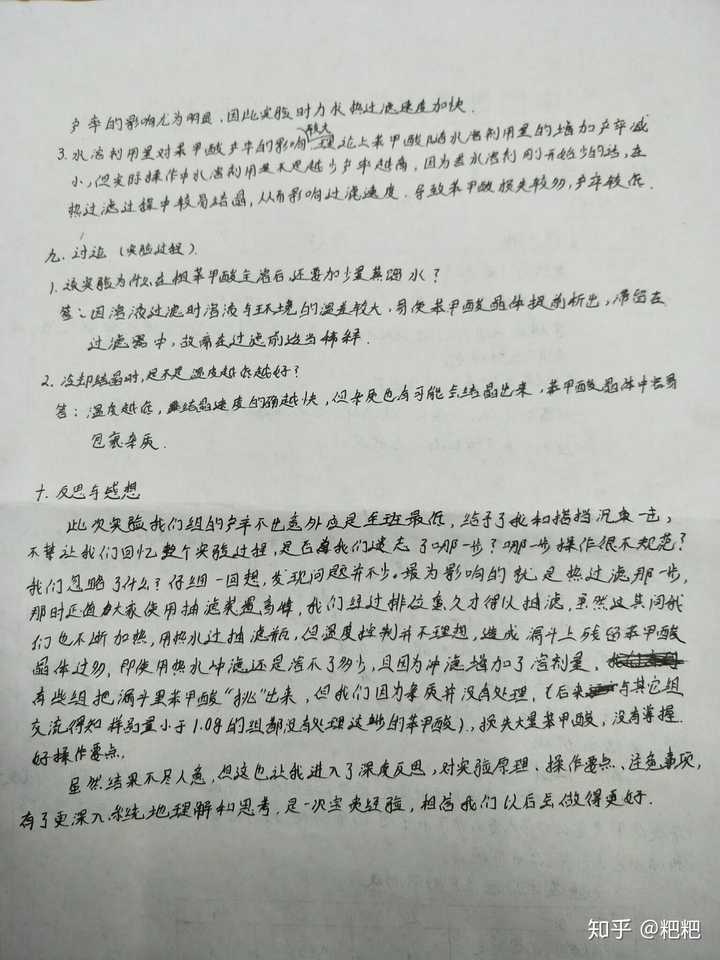 产率的影响尤为明显，因此实验时力求热过滤速度加快．
3. 水溶剂用量对苯甲酸产率的影响较大 理论上苯甲酸随水溶剂用量的增加产率减
小，但实际操作中水溶剂用量不是越少产率越高，因为若水溶剂刚开始少的话，在
热过滤过程中较易结晶，从而影响过滤速度．导致苯甲酸损失较多，产率较低．
九．讨论（实验过程）．
1. 该实验为什么在粗苯甲酸全溶后还要加少量蒸馏水？
答：因溶液过滤时溶液与环境的温差较大，易使苯甲酸晶体提前析出，滞留在
过滤器中，故需在过滤前适当稀释．
2. 冷却结晶时，是不是温度越低越好？
答：温度越低，结晶速度的确越快，但杂质也有可能会结晶出来，苯甲酸晶体中容易
包裹杂质．
十．反思与感想
此次实验我们组的产率不出意外应是全班最低，给予了我和搭挡沉重一击，
不禁让我们回忆整个实验过程，是否我们遗忘了哪一步？哪一步操作很不规范？
我们忽略了什么？仔细一回想，发现问题并不少。最为影响的就是热过滤那一步，
那时正值大家使用抽滤装置高峰，我们经过排位良久才得以抽滤，虽然这其间我
们也不断加热，用热水过抽滤瓶，但温度控制并不理想，造成漏斗上残留苯甲酸
晶体过多，即使用热水冲滤还是溶不了多少，且因为冲滤增加了溶剂量，
有些组把漏斗里苯甲酸“挑”出来，但我们因为杂质并没有处理，（后来与其它组
交流得知样剂量小于1.0g的组都没有处理这些的苯甲酸），损失大量苯甲酸，没有掌握
好操作要点．
虽然结果不尽人意，但这也让我进入了深度反思，对实验原理、操作要点、注意事项，
有了更深入系统地理解和思考，是一次宝贵经验，相信我们以后会做得更好．
知乎 @粑粑